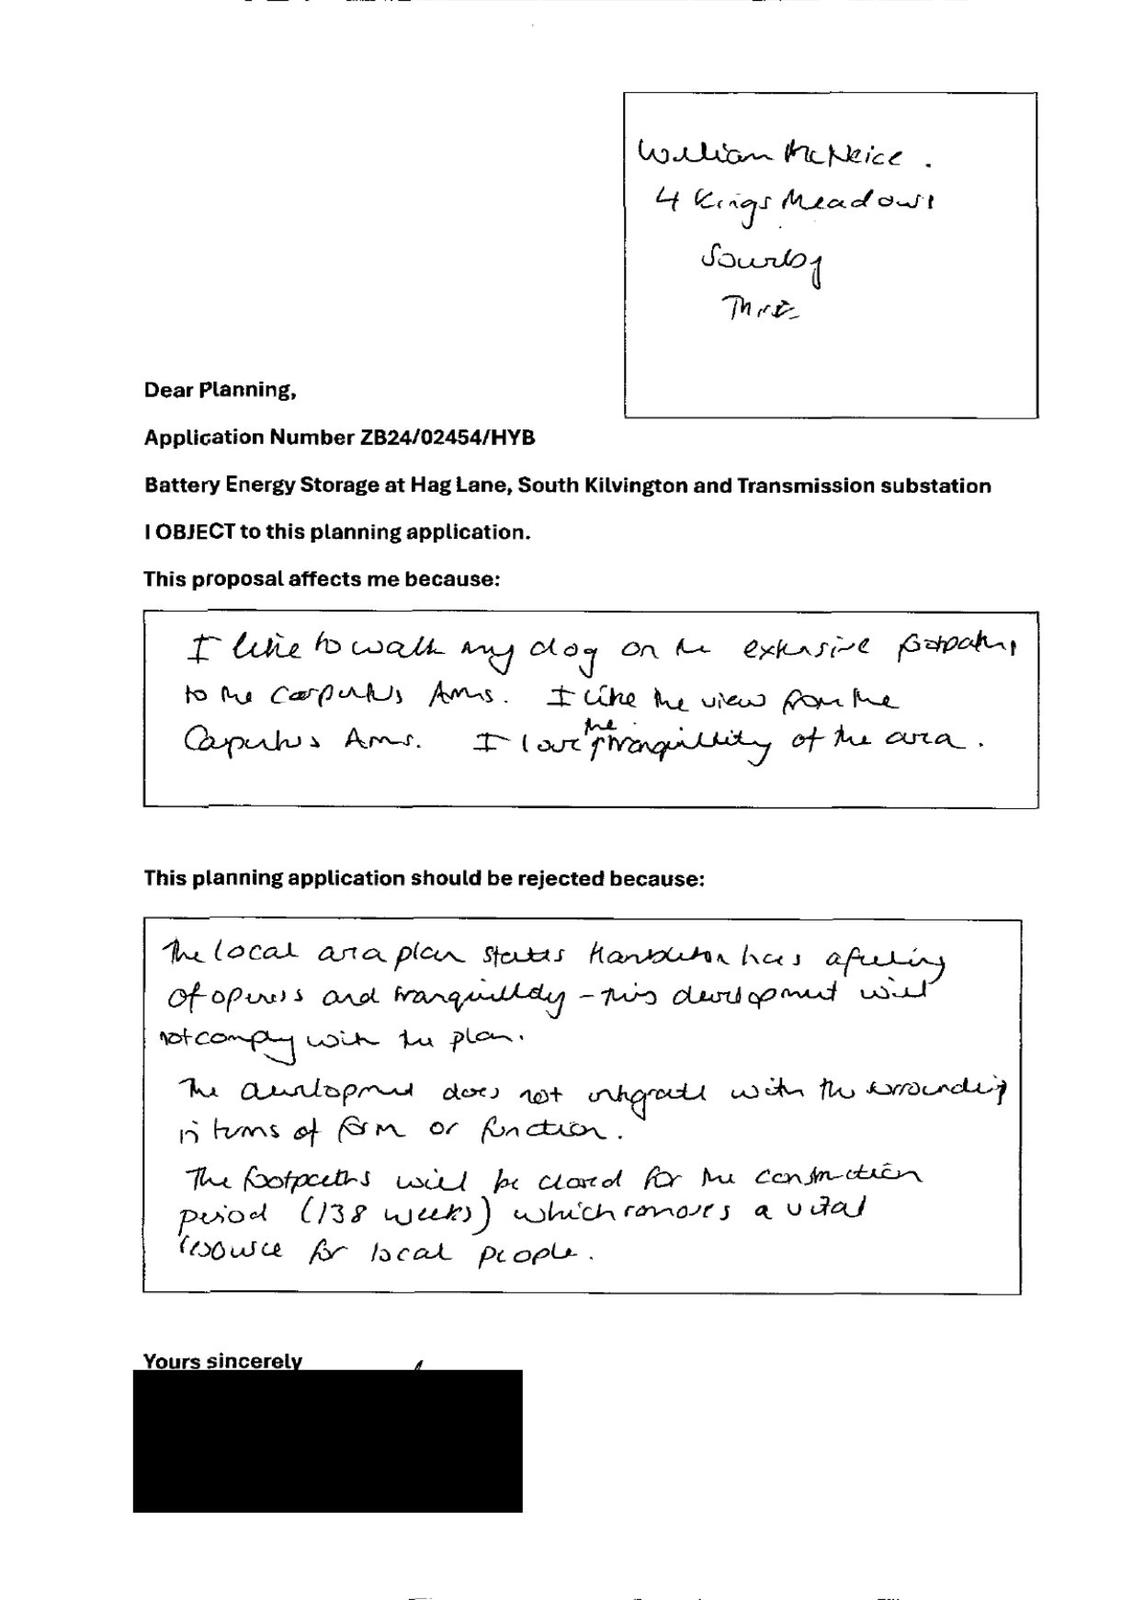 William McNeice.
4 Kings Meadows
Sowerby
Thirsk
Dear Planning,
Application Number ZB24/02454/HYB
Battery Energy Storage at Hag Lane, South Kilvington and Transmission substation
I OBJECT to this planning application.
This proposal affects me because:
I like to walk my dog on the extensive footpaths
to the Carpenters Arms. I like the view from the
Carpenters Arms. I love the tranquillity of the area.
This planning application should be rejected because:
The local area plan states Hambleton has a feeling
of openness and tranquillity - this development will
not comply with the plan.
The development does not integrate with the surrounding
in terms of form or function.
The footpaths will be closed for the construction
period (138 weeks) which removes a vital
resource for local people.
Yours sincerely